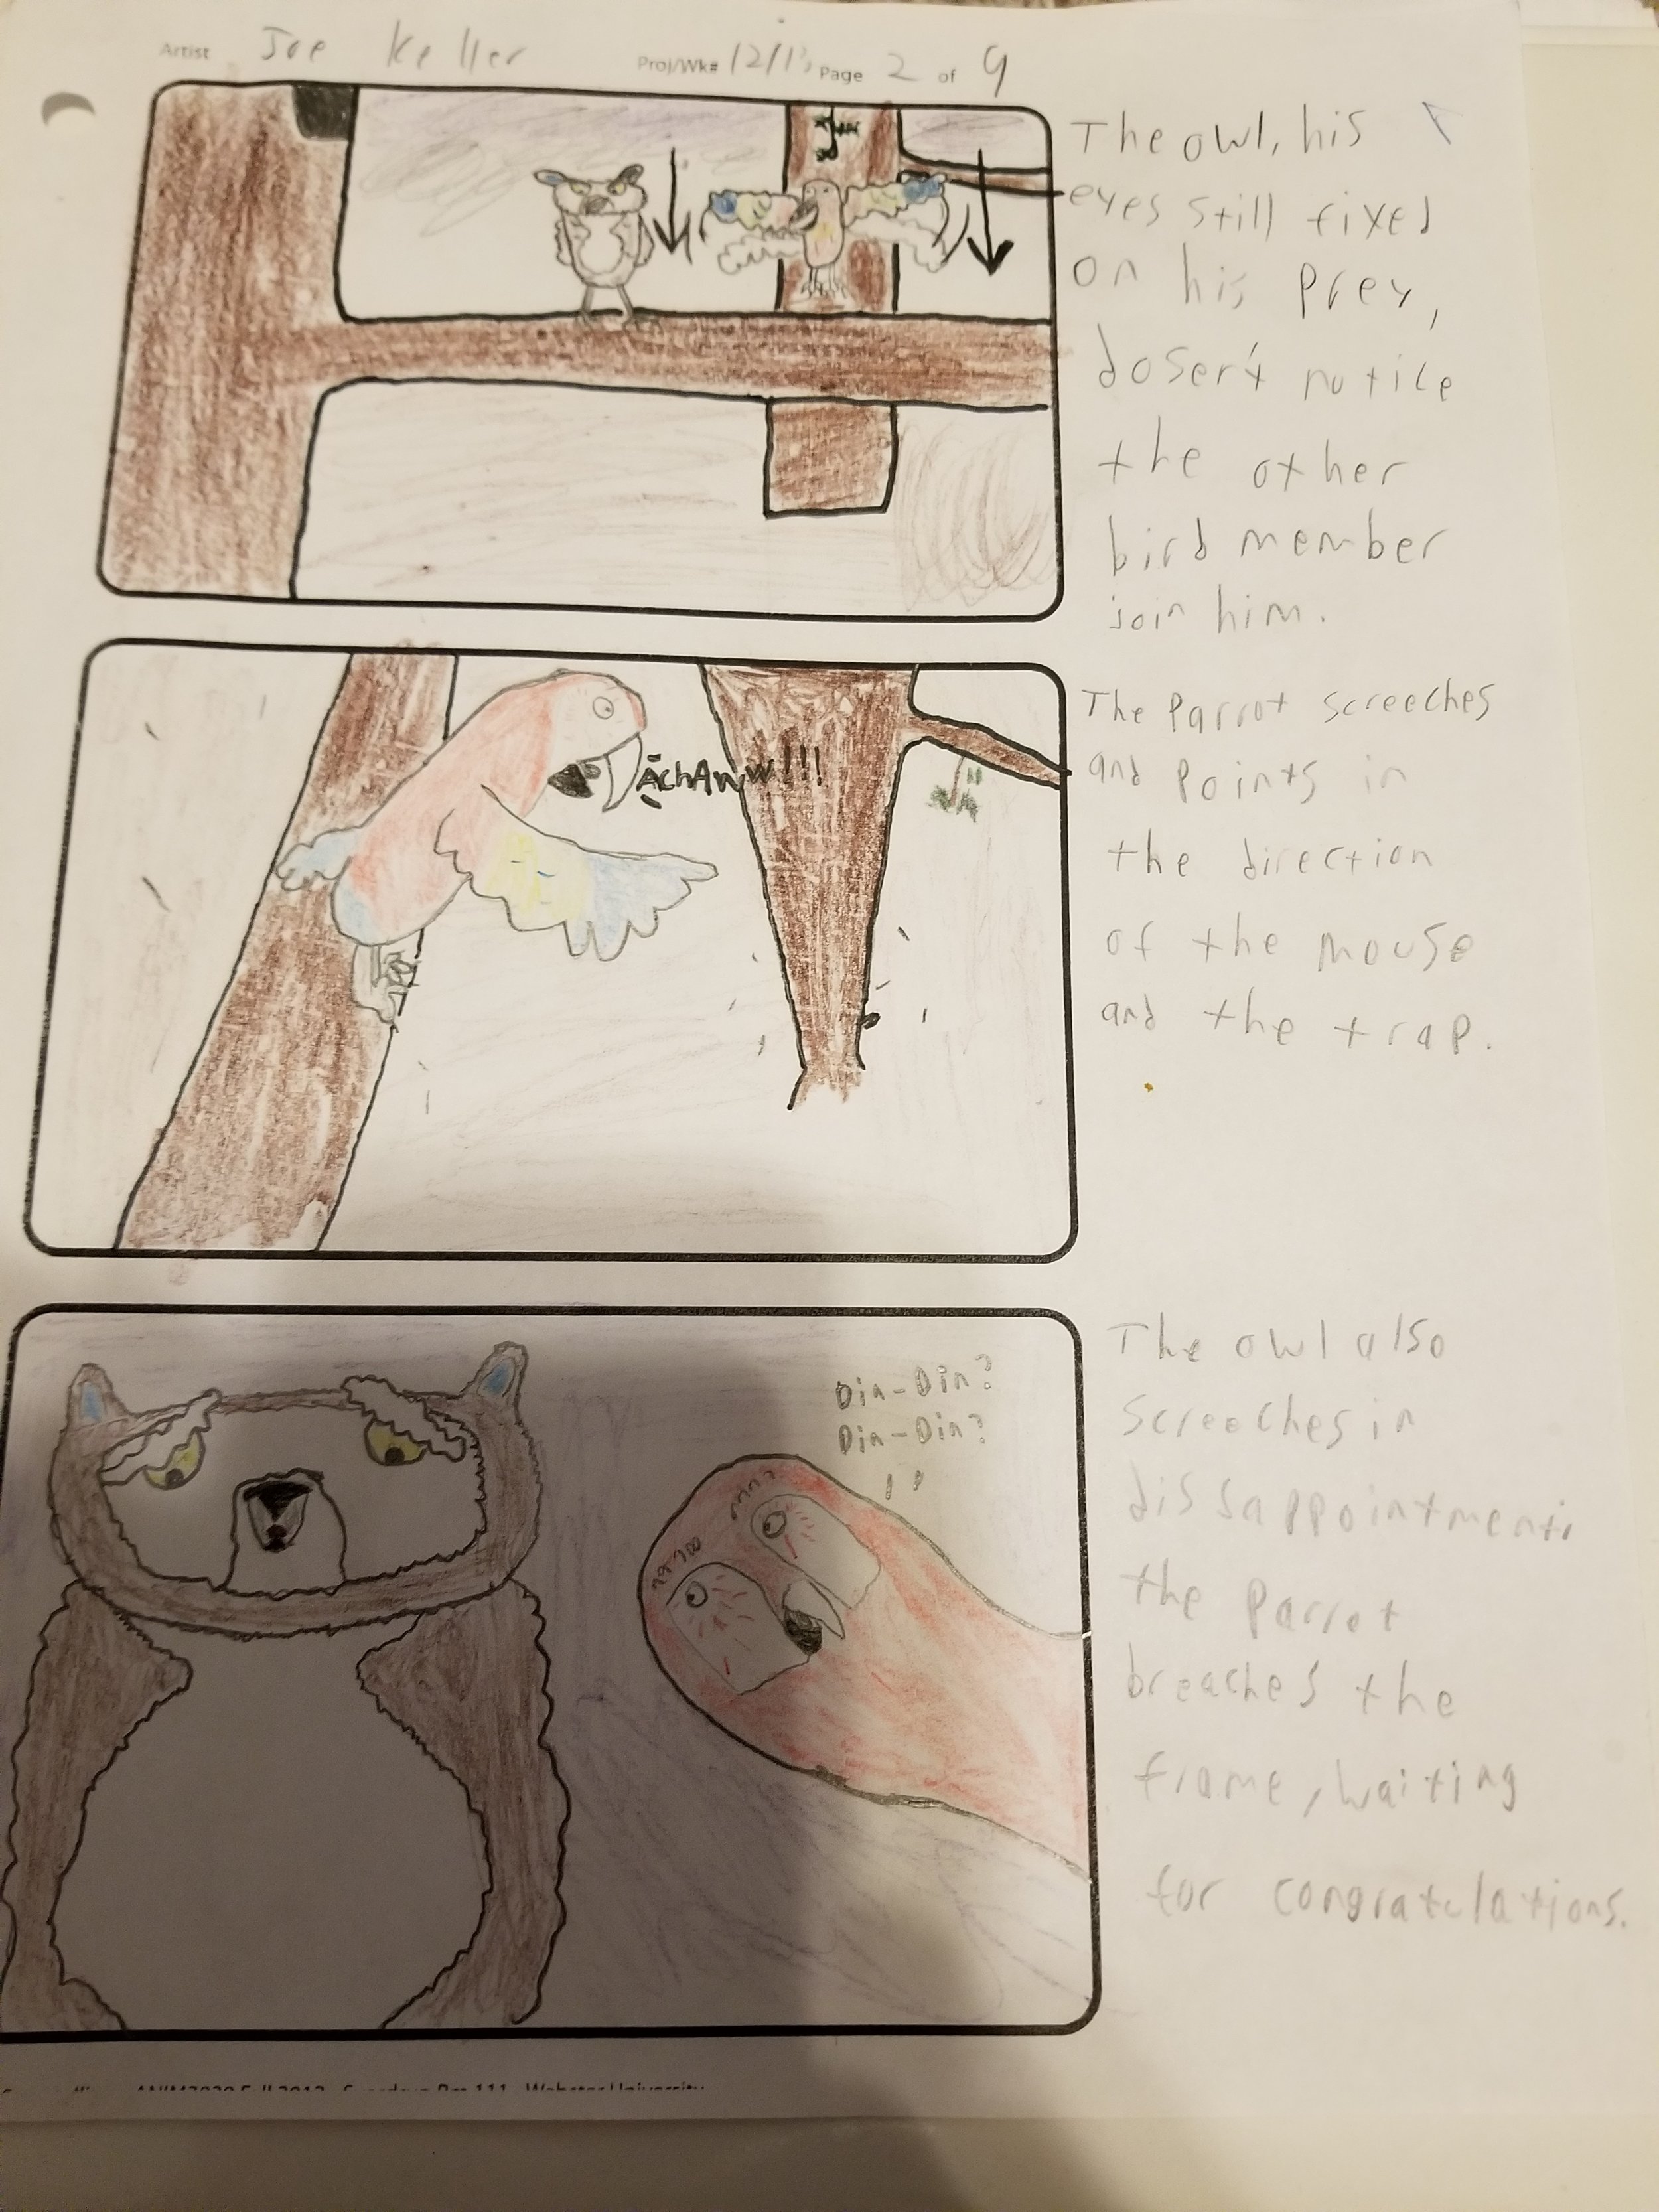 Artist Joe Keller Proj/Wk# 12/13 Page 2 of 9
The owl, his
eyes still fixed
on his prey,
doesn't notice
the other
bird member
join him.
ĀchAww!!!
The Parrot screeches
and points in
the direction
of the mouse
and the trap.
Din-Din?
Din-Din?
The owl also
screeches in
dissappointment.
the parrot
breaches the
frame, waiting
for congratulations.
Webster University